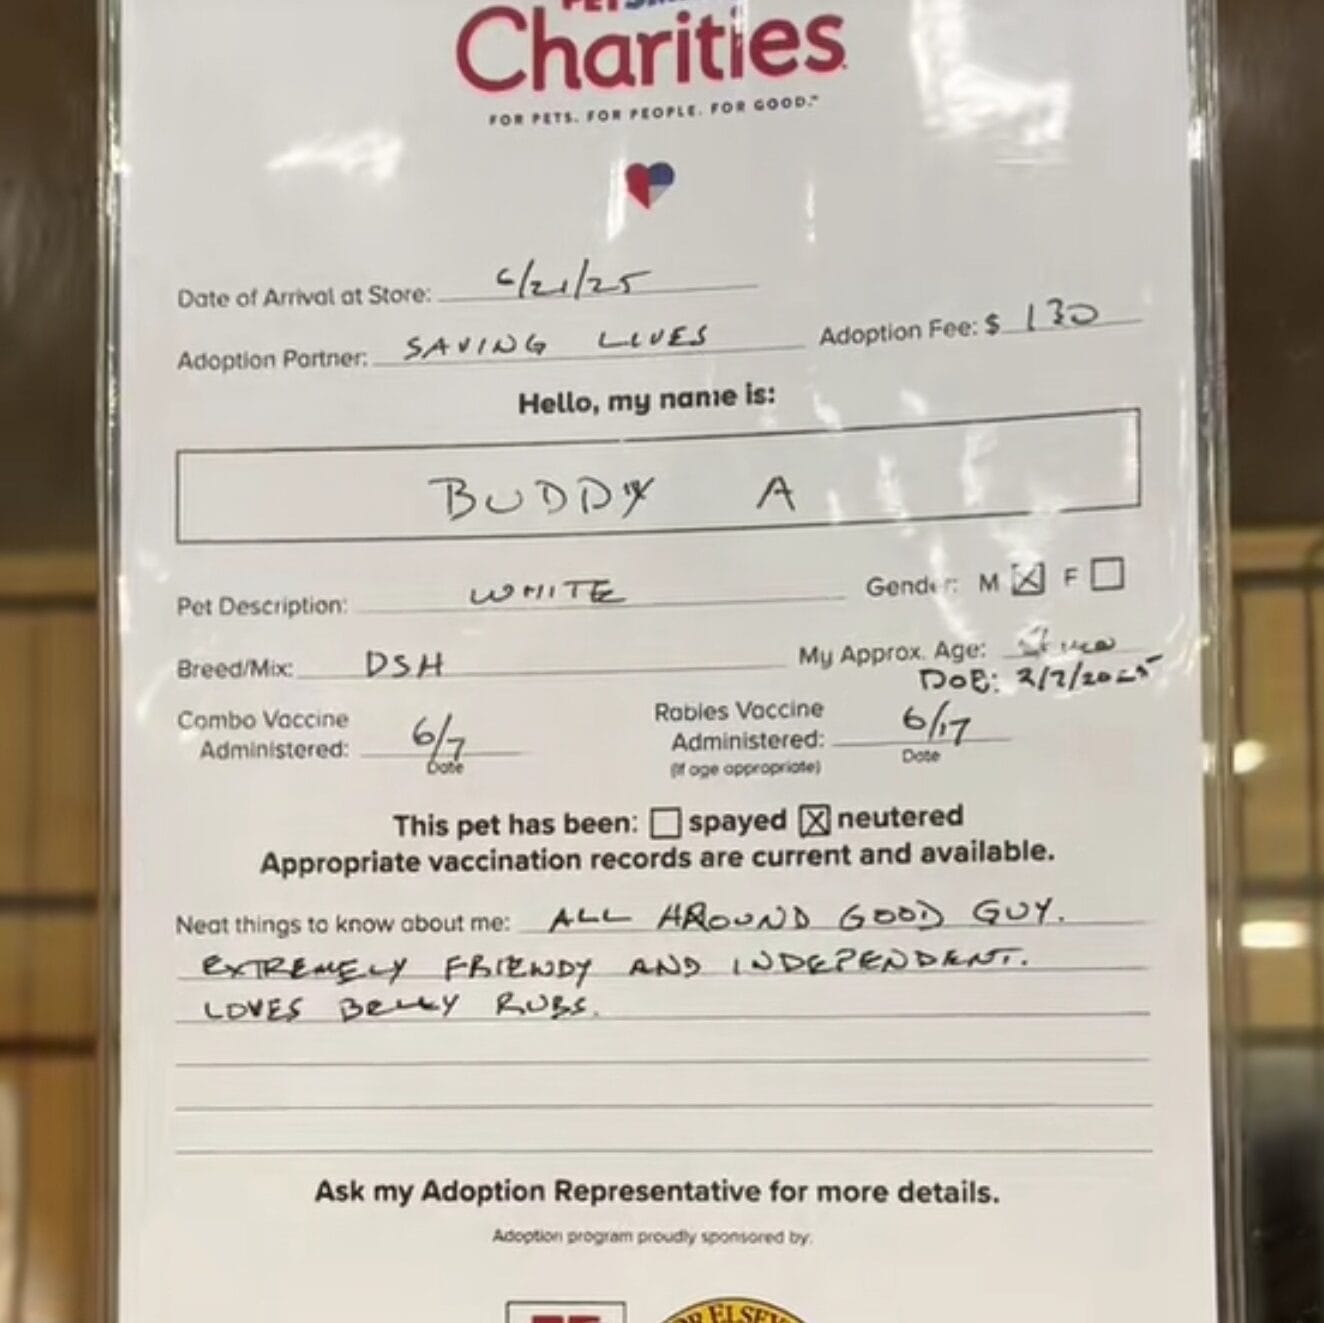 Charities
FOR PETS. FOR PEOPLE. FOR GOOD.™
Date of Arrival at Store: 6/21/25
Adoption Partner: SAVING LIVES Adoption Fee: $ 130
Hello, my name is:
BUDDY A
Pet Description: WHITE Gender: M ☒ F ☐
Breed/Mix: DSH My Approx. Age:
DOB: 2/7/2025
Combo Vaccine Administered: 6/7 Date
Rabies Vaccine Administered: (if age appropriate) 6/17 Date
This pet has been: ☐ spayed ☒ neutered
Appropriate vaccination records are current and available.
Neat things to know about me: ALL AROUND GOOD GUY.
EXTREMELY FRIENDY AND INDEPENDENT.
LOVES BELLY RUBS.
Ask my Adoption Representative for more details.
Adoption program proudly sponsored by:
ELSEY